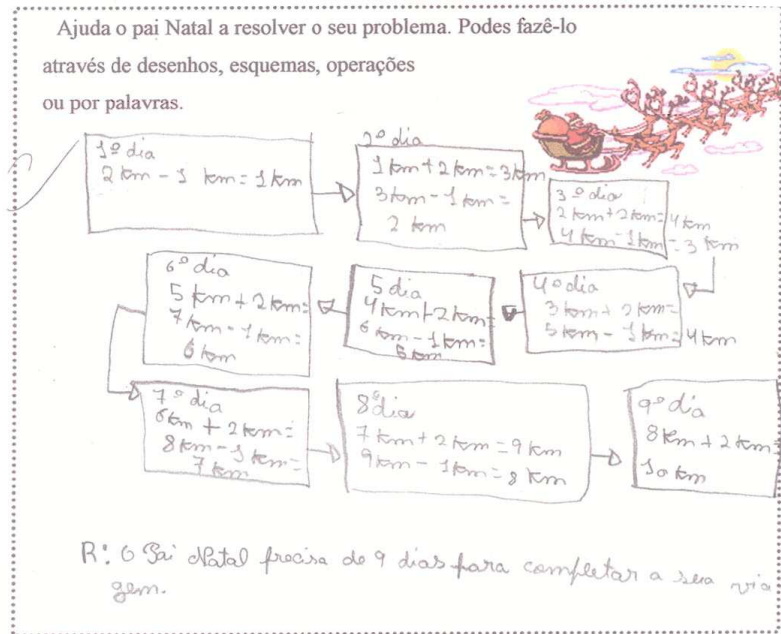 Ajuda o pai Natal a resolver o seu problema. Podes fazê-lo
através de desenhos, esquemas, operações
ou por palavras.
1º dia
2 km - 1 km = 1 km
2º dia
1 km + 2 km = 3 km
3 km - 1 km =
2 km
3º dia
2 km + 2 km = 4 km
4 km - 1 km = 3 km
4º dia
3 km + 2 km =
5 km - 1 km = 4 km
5 dia
4 km + 2 km =
6 km - 1 km =
5 km
6º dia
5 km + 2 km =
7 km - 1 km =
6 km
7º dia
6 km + 2 km =
8 km - 1 km =
7 km
8º dia
7 km + 2 km = 9 km
9 km - 1 km = 8 km
9º dia
8 km + 2 km =
10 km
R: O Pai Natal precisa de 9 dias para completar a sua via
gem.